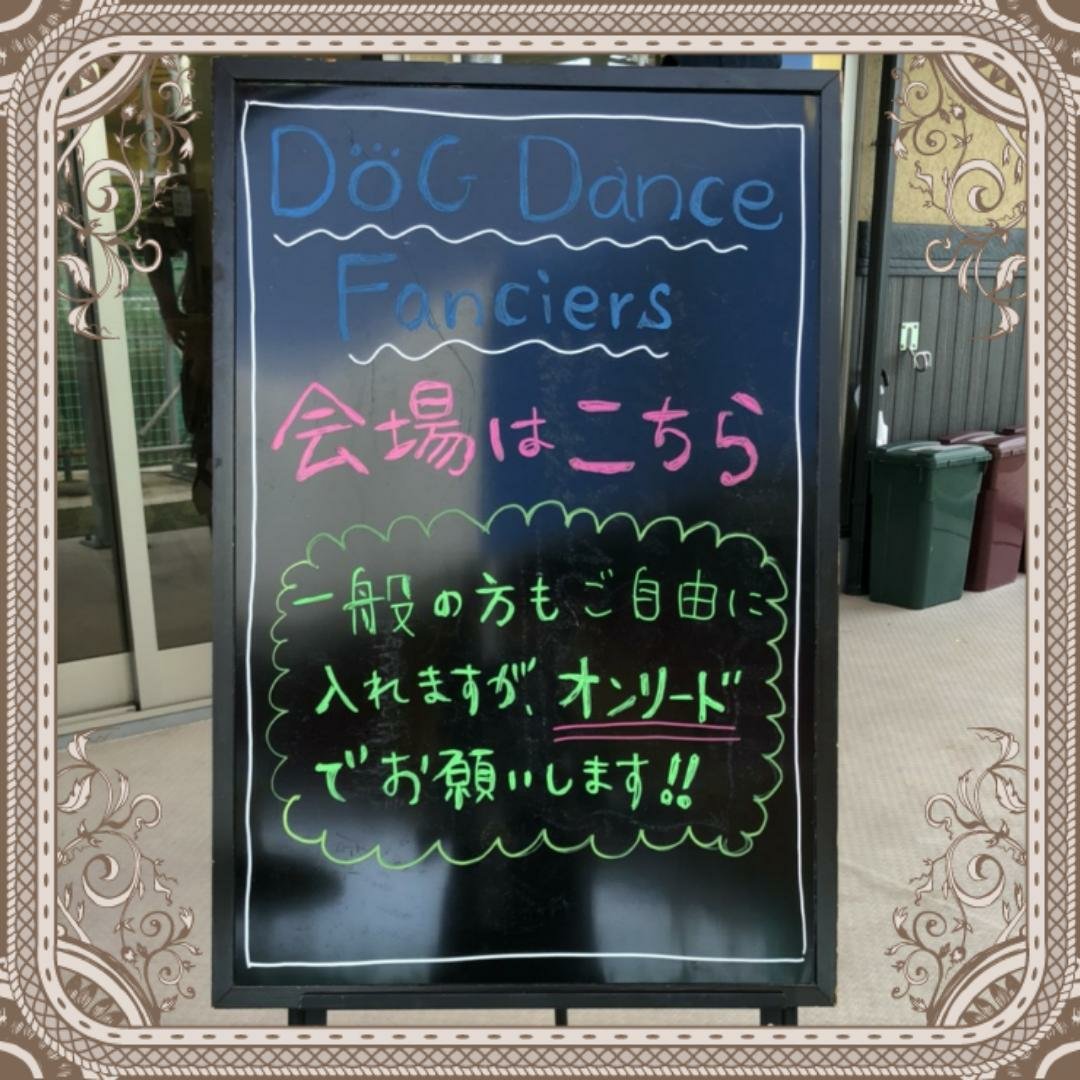 DOG Dance
Fanciers
会場はこちら
一般の方もご自由に
入れますが、オンリード
でお願いします!!